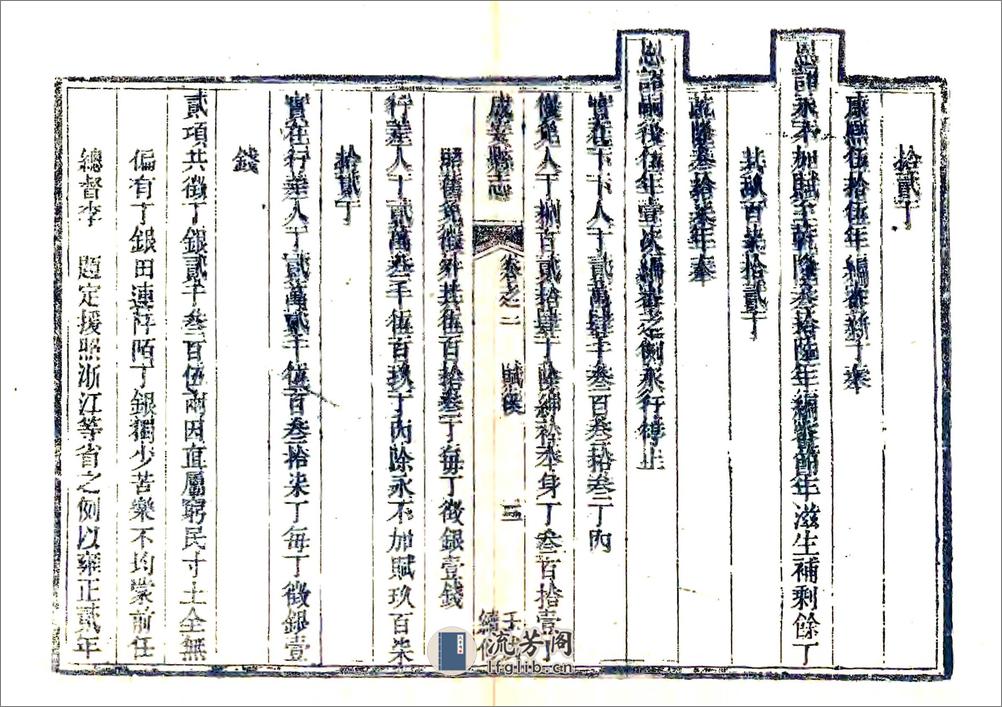 拾貳丁
康熙伍拾伍年編審新丁奉
恩詔永不加賦至乾隆叁拾陸年編審節年滋生補剩餘丁
共玖百柒拾貳丁
乾隆叁拾柒年奉
恩詔嗣後伍年壹次編審之例永行停止
實在下下人丁貳萬肆千叁百叁拾叁丁內
優免人丁捌百貳拾肆丁除紳衿本身丁叁百拾壹丁
成安縣志
卷之二
賦役
三
照舊免徵外共伍百拾叁丁每丁徵銀壹錢
行差人丁貳萬叁千伍百玖丁內除永不加賦玖百柒
拾貳丁
實在行差人丁貳萬貳千伍百叁拾柒丁每丁徵銀壹
錢
貳項共徵丁銀貳千叁百伍兩因直屬窮民寸土全無
偏有丁銀田連阡陌丁銀獨少苦樂不均蒙前任
總督李 題定援照浙江等省之例以雍正貳年
流芳閣
lfglib.cn